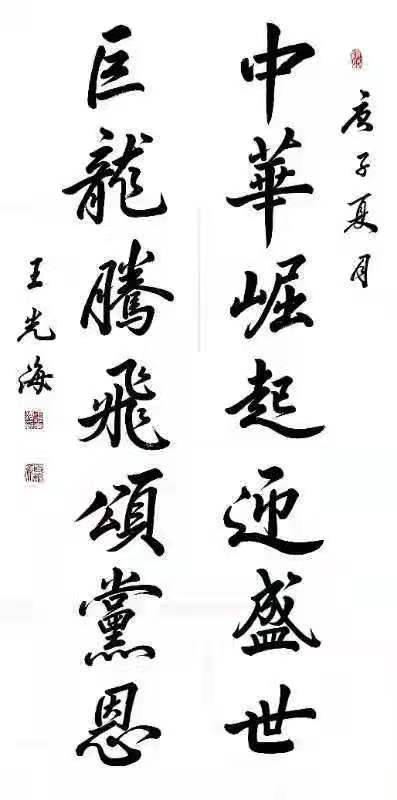 庚子夏月
中華崛起迎盛世
巨龍騰飛頌黨恩
王光海